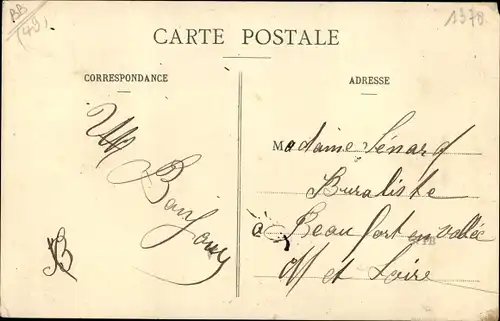 BB
(49)
1378
CARTE POSTALE
CORRESPONDANCE
ADRESSE
Un
Bonjour
B
Madame Sénard
Buraliste
à Beaufort en vallée
M et Loire